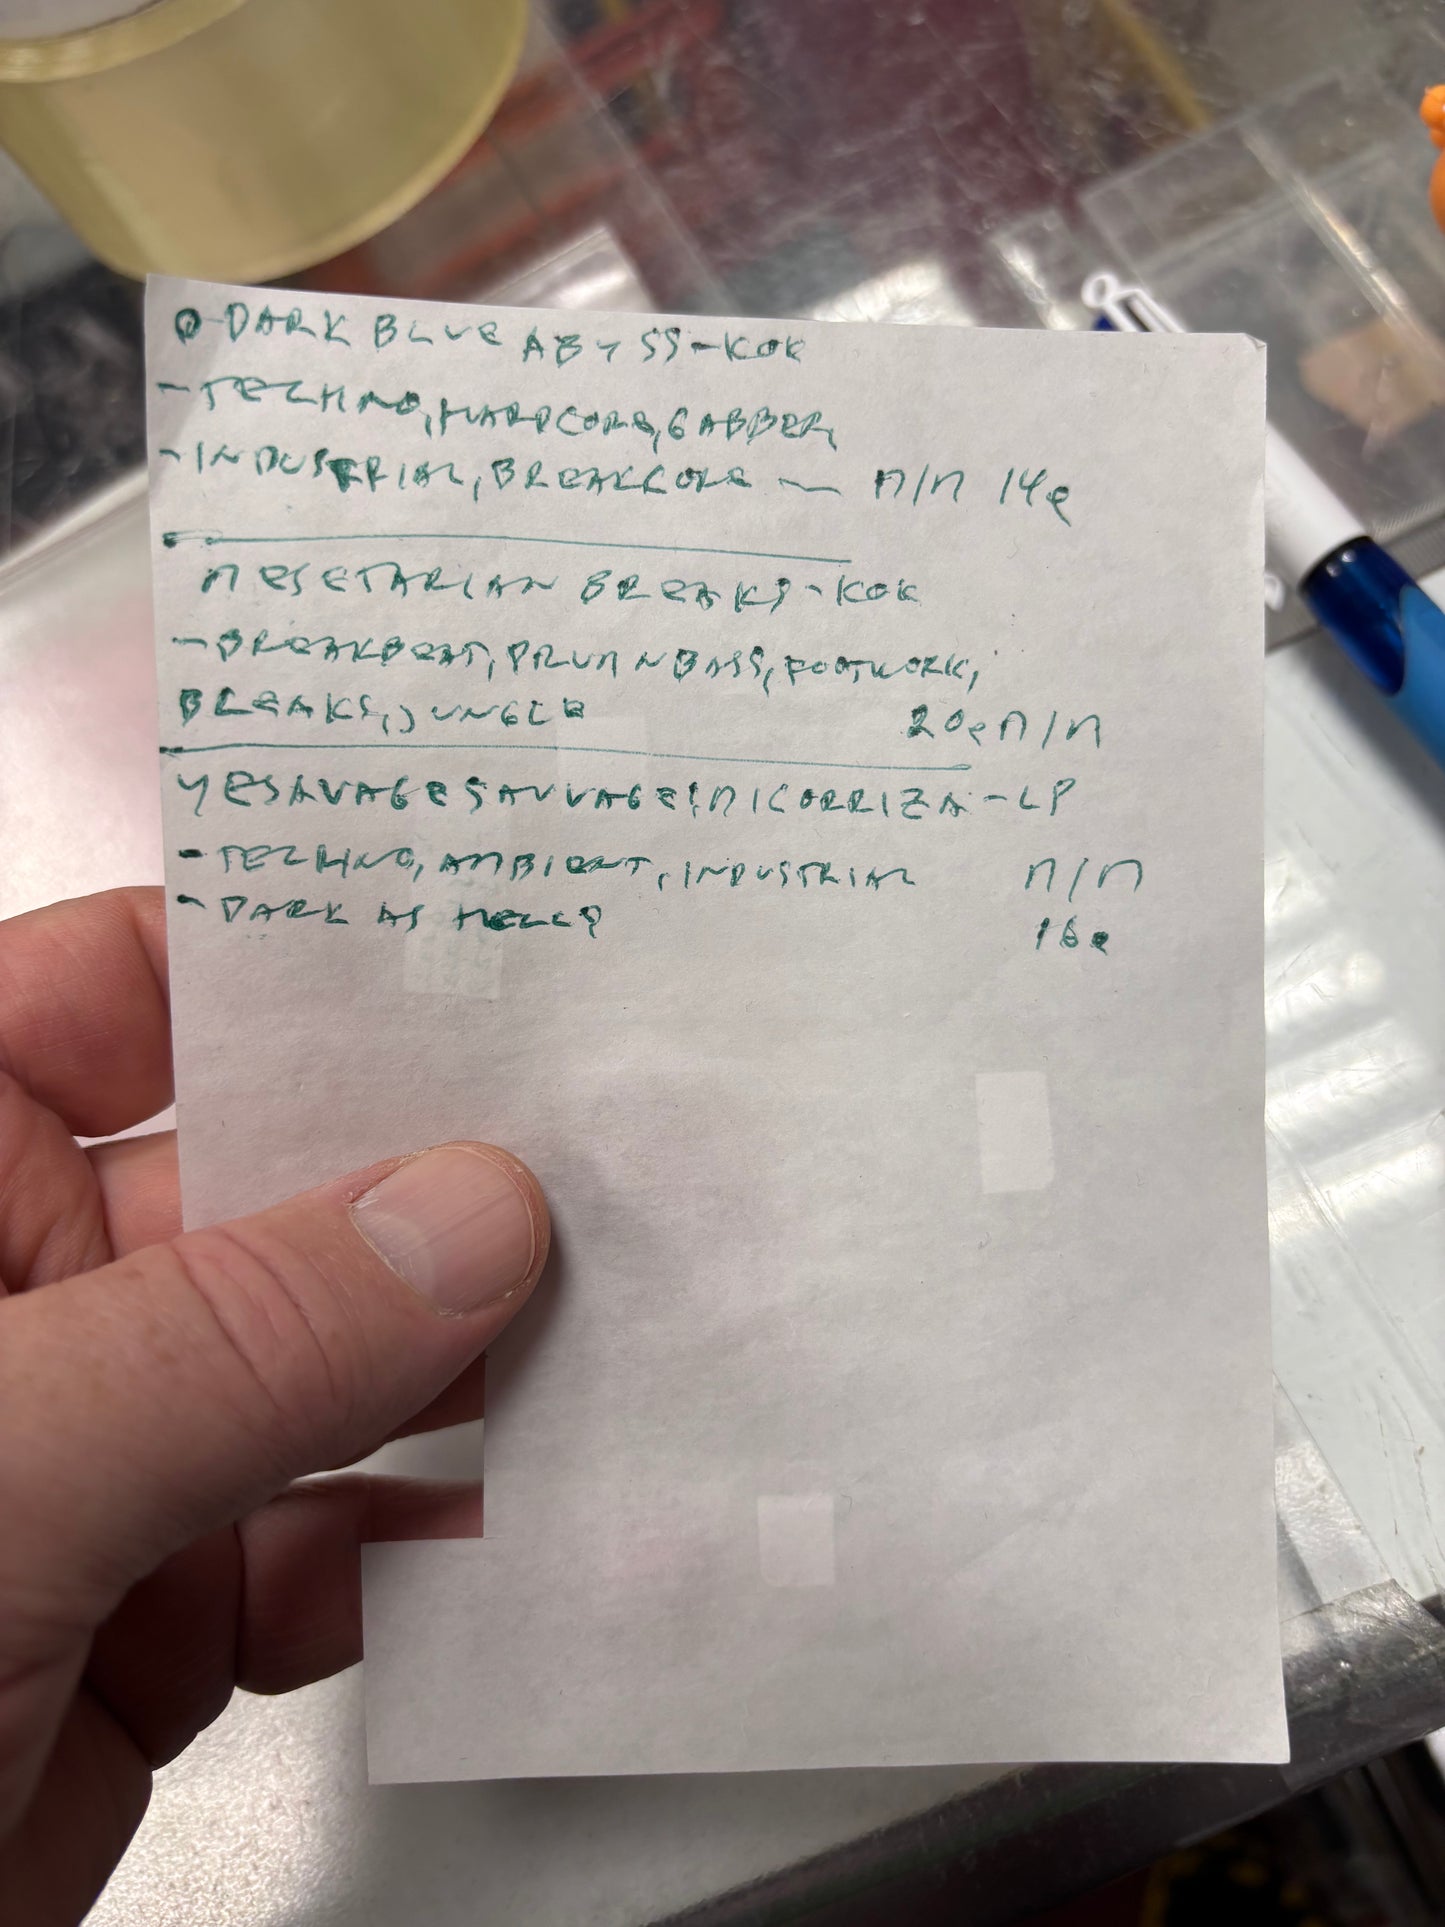 O-DARK BLUE ABYSS-KOK
-TECHNO, HARDCORE, GABBER,
-INDUSTRIAL, BREAKCORE — M/M 14e
MESETARIAN BREAKS-KOK
-BREAKBEAT, DRUM N BASS, FOOTWORK,
BREAKS, JUNGLE 20e M/M
YESAVAGESAUVAGE!MICORRIZA-LP
-TECHNO, AMBIENT, INDUSTRIAL M/M
-DARK AS HELL? 16e